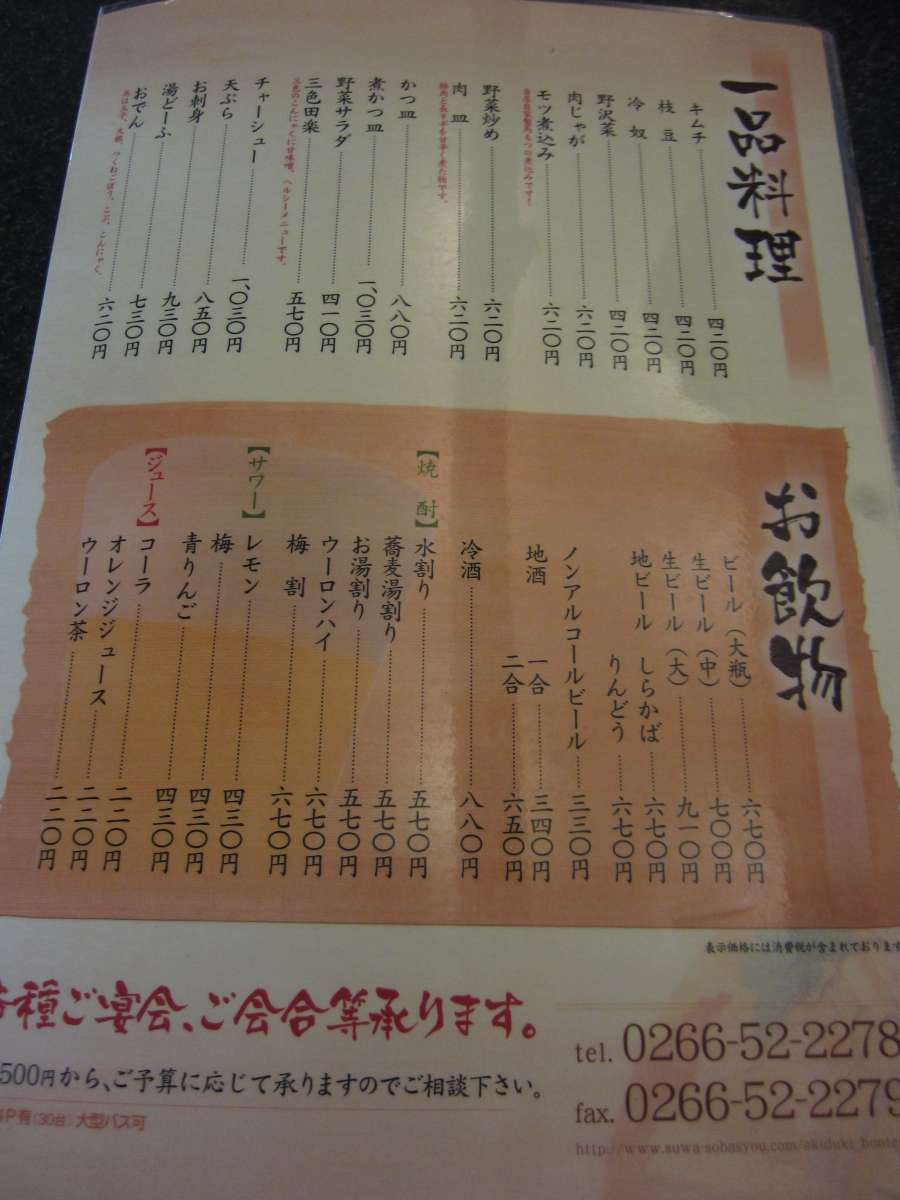 一品料理
キムチ 四二〇円
枝豆 四二〇円
冷奴 四二〇円
野沢菜 四二〇円
肉じゃが 六二〇円
モツ煮込み 六二〇円
野菜炒め 六二〇円
肉皿 六二〇円
かつ皿 八八〇円
煮かつ皿 一、〇三〇円
野菜サラダ 四一〇円
三色田楽 五七〇円
三色のこんにゃくに甘味噌、ヘルシーメニューです。
チャーシュー 一、〇三〇円
天ぷら 八五〇円
お刺身 九三〇円
湯どーふ 七三〇円
おでん 六二〇円
お飲物
ビール（大瓶） 六七〇円
生ビール（中） 七〇〇円
生ビール（大） 九一〇円
地ビール しらかば 六七〇円
りんどう 六七〇円
ノンアルコールビール 三三〇円
地酒 一合 三四〇円
二合 六五〇円
冷酒 八八〇円
【焼酎】水割り 五七〇円
蕎麦湯割り 五七〇円
お湯割り 五七〇円
ウーロンハイ 六七〇円
梅割 六七〇円
【サワー】レモン 四三〇円
梅 四三〇円
青りんご 四三〇円
【ジュース】コーラ 二二〇円
オレンジジュース 二二〇円
ウーロン茶 二二〇円
表示価格には消費税が含まれております
種ご宴会、ご会合等承ります。
500円から、ご予算に応じて承りますのでご相談下さい。
P有（30台）大型バス可
tel. 0266-52-2278
fax. 0266-52-2279
http://www.suwa-sobasyou.com/akiduki_honte